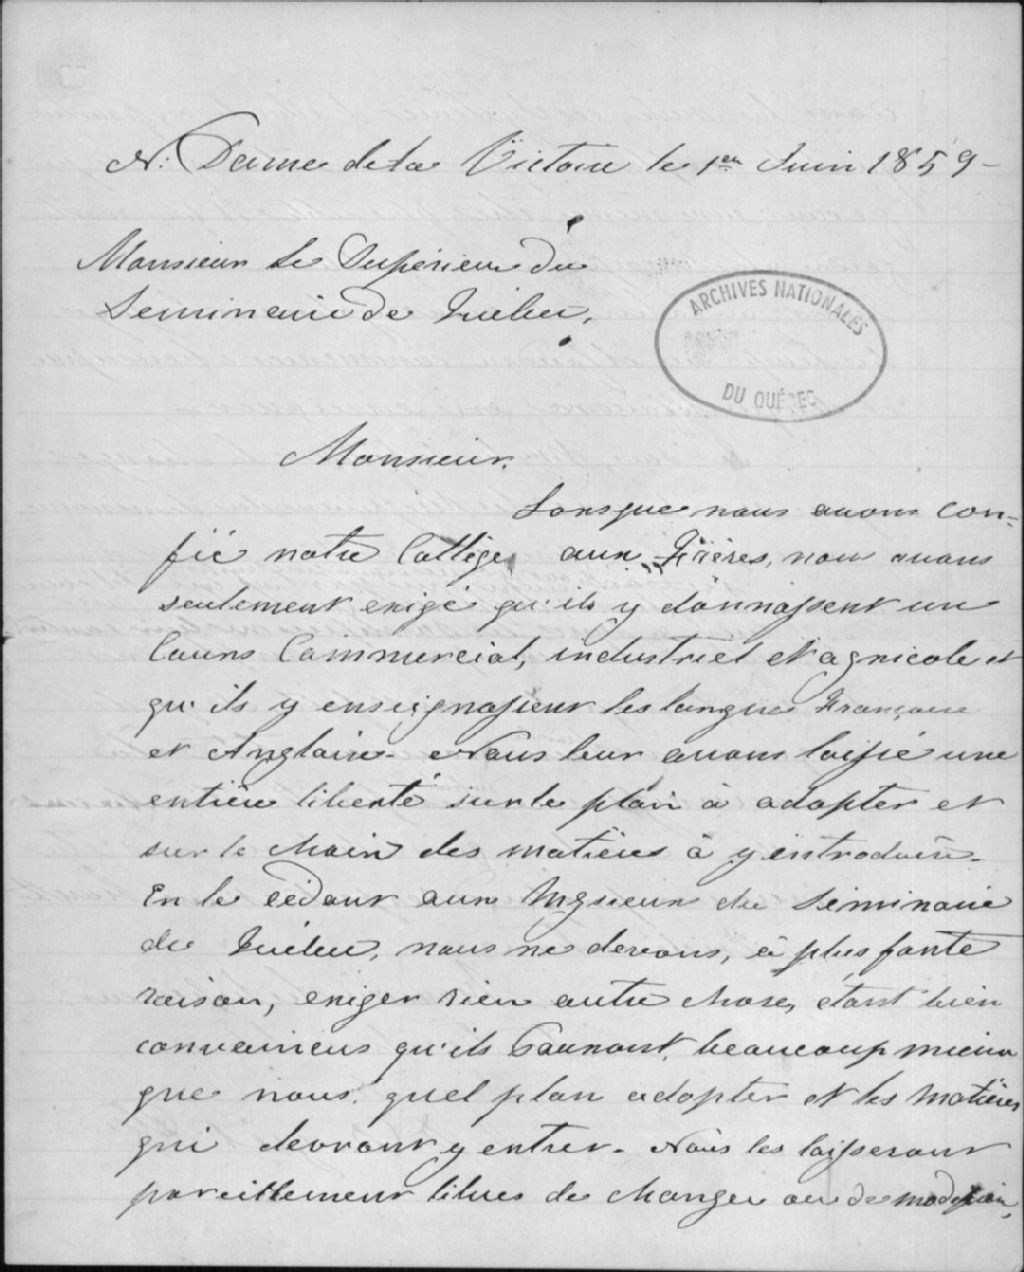 N. Dame de la Victoire le 1er Juin 1859 -
Monsieur Le Supérieur du
Seminaire de Quebec,
ARCHIVES NATIONALES
DU QUÉBEC
Monsieur.
Lorsque nous avons con-
fié notre Collége aux Frères, nous avons
seulement exigé qu'ils y donnassent un
Cours Commercial, industriel et agricole et
qu'ils y enseignassent les langues Française
et Anglaise. Nous leur avons laissé une
entière liberté sur le plan à adopter et
sur le choix des matières à y introduire.
En le cédant aux Messieurs du Séminaire
de Quebec, nous ne devons, à plus forte
raison, exiger rien autre chose, étant bien
convaincus qu'ils sauront beaucoup mieux
que nous quel plan adopter et les matières
qui devront y entrer. Nous les laisserons
pareillement libres de changer ou de modifier,